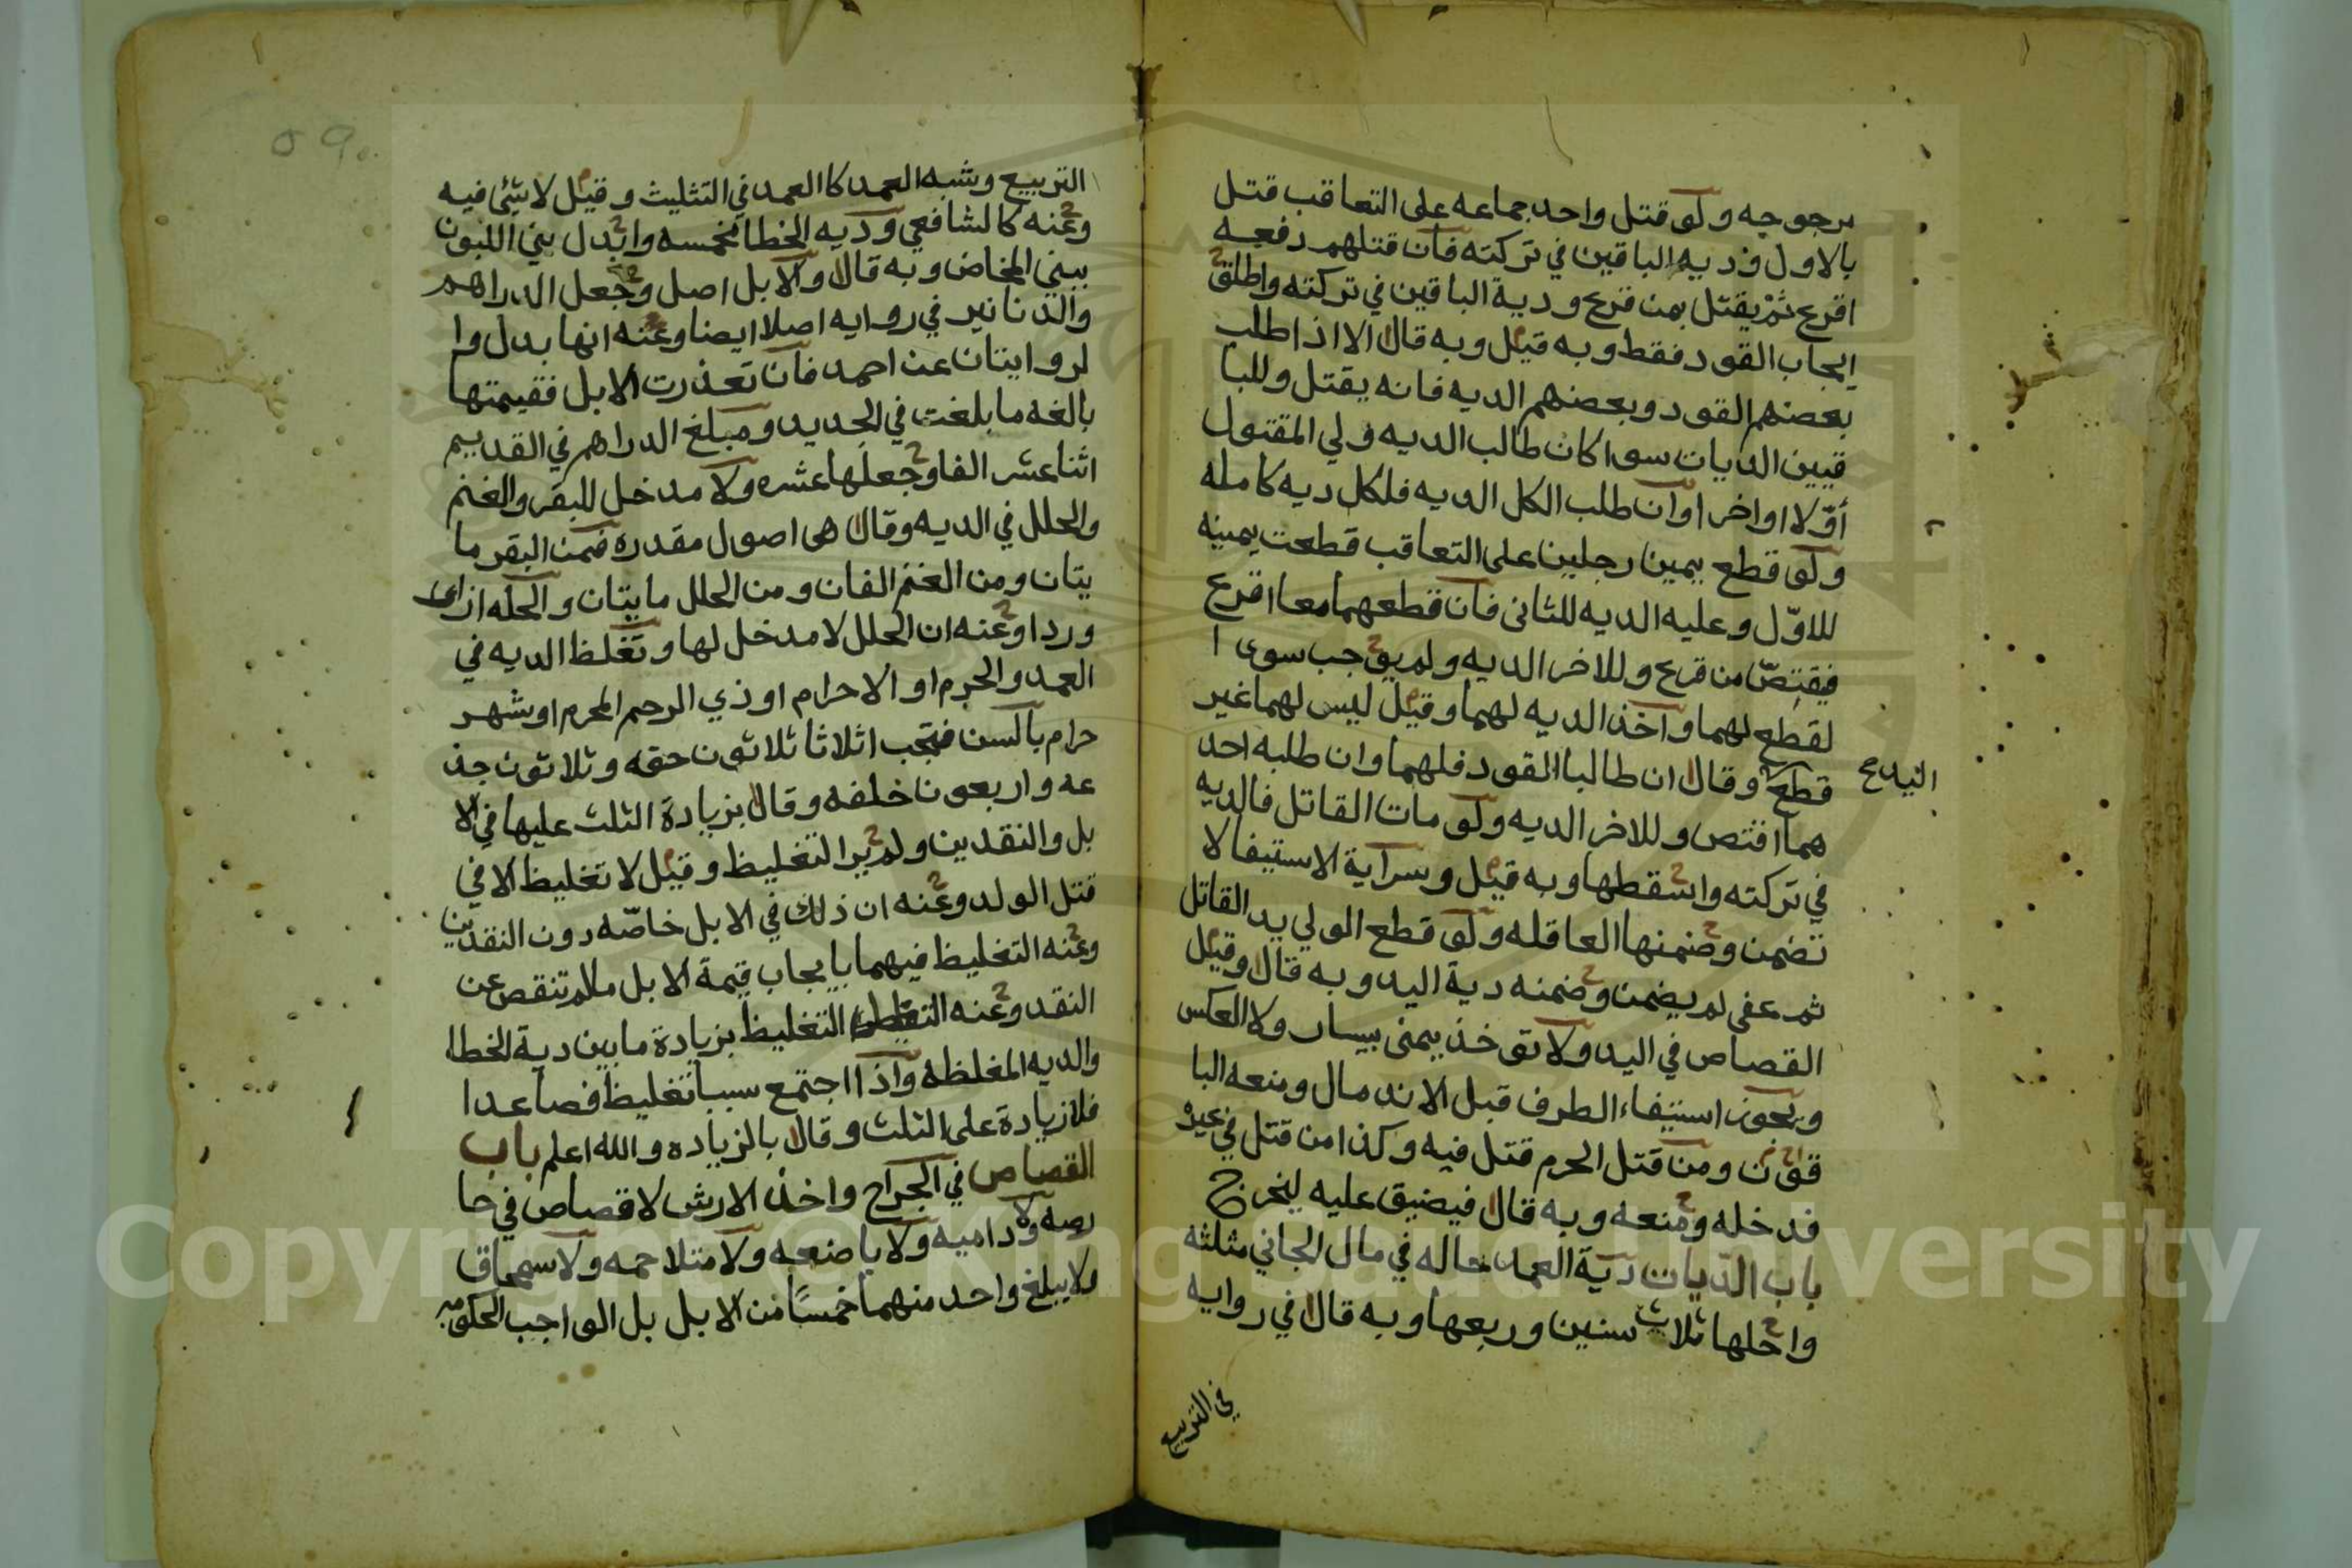 مرجوحه ولو قتل واحد جماعه على التعاقب قتل
بالاول وديه الباقين في تركته فان قتلهم دفعه
اقرع ثم يقتل بمن قرع ودية الباقين في تركته واطلق
ايجاب القود فقط وبه قيل وبه قال الا اذا طلب
بعضهم القود وبعضهم الديه فانه يقتل وللبا
قيين الديات سوا كان طالب الديه ولي المقتول
أوّلا او اخرا وان طلب الكل الديه فلكل ديه كامله
ولو قطع يمين رجلين على التعاقب قطعت يمينه
للاوّل وعليه الديه للثانى فان قطعهما معا اقرع
فيقتصّ من قرع وللاخر الديه ولم يوجب سوى ا
لقطع لهما واخذ الديه لهما وقيل ليس لهما غير
قطع وقال ان طالبا القود فلهما وان طلبه احد
هما اقتص وللاخر الديه ولو مات القاتل فالديه
في تركته واسقطها وبه قيل وسراية الاستيفا لا
تضمن وضمنها العاقله ولو قطع الولي يد القاتل
ثم عفى لم يضمن وضمنه دية اليد وبه قال وقيل
القصاص في اليد ولا توخذ يمنى بيسار ولا العكس
ويجوز استيفاء الطرف قبل الاندمال ومنعه البا
قون ومن قتل الحرم قتل فيه وكذا من قتل في غيره
فدخله ومنعه وبه قال فيضيق عليه ليخرج
باب الديات دية العمد حاله في مال الجاني مثلثه
واجلها ثلاث سنين وربعها وبه قال في روايه
في التربيع
التربيع وشبه العمد كا العمد في التثليث وقيل لا شئ فيه
وعنه كالشافعي وديه الخطا مخمسه وابدل بني اللبون
ببني المخاض وبه قال والابل اصل وجعل الدراهم
والدنانير في روايه اصلا ايضا وعنه انها بدل وا
لروايتان عن احمد فان تعذرت الابل فقيمتها
بالغه ما بلغت في الجديد ومبلغ الدراهم في القديم
اثنا عشر الفا وجعلها عشره ولا مدخل للبقر والغنم
والحلل في الديه وقال هى اصول مقدره فمن البقر ما
يتان ومن الغنم الفان ومن الحلل مايتان والحله ازار
وردا وعنه ان الحلل لا مدخل لها وتغلظ الديه في
العمد والحرم او الاحرام او ذي الرحم المحرم او شهر
حرام بالسن فتجب اثلاثا ثلاثون حقه وثلاثون جذ
عه واربعون خلفه وقال بزيادة الثلث عليها في الا
بل والنقدين ولم ير التغليظ وقيل لا تغليظ الا في
قتل الولد وعنه ان ذلك في الابل خاصّه دون النقدين
وعنه التغليظ فيهما بايجاب قيمة الابل مالم تنقص عن
النقد وعنه التغليظ بزيادة ما بين دية الخطا
والديه المغلظه واذا اجتمع سببا تغليظ فصاعدا
فلا زيادة على الثلث وقال بالزياده والله اعلم باب
القصاص في الجراح واخذ الارش لا قصاص في حا
رصه ولا داميه ولا باضعه ولا متلاحمه ولا سمحاق
ولا يبلغ واحد منهما خمسًا من الابل بل الواجب الحكومه